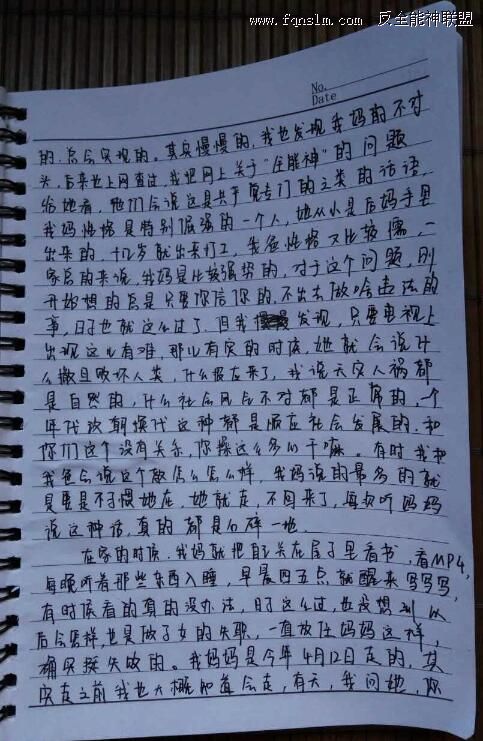 www.fqnslm.com 反全能神联盟
No.
Date
的,总会实现的。其实慢慢的,我也发现我妈的不对
头,后来也上网查过,我把网上关于"全能神"的问题
给她看,他们会说这是共产党专门的之类的话语,
我妈性格是特别倔强的一个人,她从小是后妈手里
出来的,十几岁就出来打工,我爸性格又比较懦,一
家总的来说,我妈是比较强势的,对于这个问题,刚
开始想的总是只要你信你的,不出去做啥违法的
事,日子也就这么过了,但我慢慢发现,只要电视上
出现这儿有难,那儿有灾的时候,她就会说什
么撒旦败坏人类,什么报应来了,我说天灾人祸都
是自然的,什么社会风气不对都是正常的,一个
年代改朝换代这种都是顺应社会发展的,和
你们这个没有关系,你操这么多心干嘛。有时我和
我爸会说这个敢怎么怎么样,我妈说的最多的就
是要是不习惯她在,她就走,不回来了,每次听妈妈
说这种话,真的都是心碎一地。
在家的时候,我妈就把自己关在屋子里看书,看MP4,
每晚听着那些东西入睡,早晨四五点就醒来写写写,
有时候看的真的没办法,日子这么过,也没想到以
后会怎样,也是做子女的失职,一直放任妈妈这样,
确实挺失败的。我妈妈是今年4月12日走的,其
实走之前我也大概知道会走,有天,我问她,你